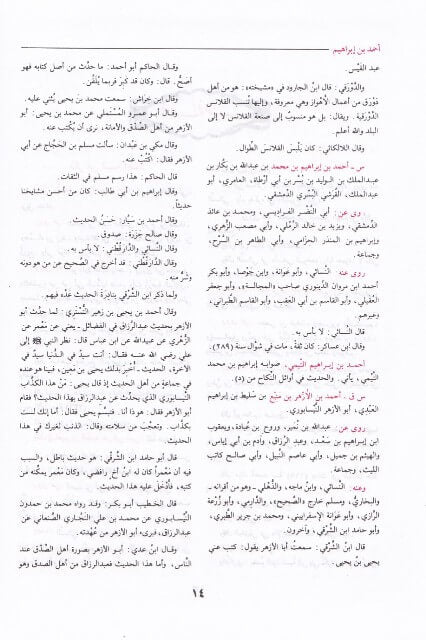 أحمد بن إبراهيم
عبد القيس.
والدَّوْرَقي: قال ابنُ الجارود في «مشيخته»: هو من أهل
دَوْرَق من أعمال الأهواز وهي معروفة، وإليها تُنسب القلانس
الدَّوْرَقية. ويقال: بل هو منسوب إلى صنعة القلانس لا إلى
البلد والله أعلم.
وقال اللالكائي: كان يَلْبَس القلانس الطِّوال.
س - أحمد بن إبراهيم بن محمد بن عبدالله بن بَكَّار بن
عبدالملك بن الوليد بن بُسْر بن أبي أَرْطاة، العامري، أبو
عبدالملك، القُرشي البُسْري الدِّمشقي.
روى عن: أبي النَّضْر الفَراديسي، ومحمد بن عائذ
الدِّمشقي، ويزيد بن خالد الرَّمْلي، وأبي مصعب الزُّهري،
وإبراهيم بن المنذر الحِزامي، وأبي الطاهر بن السَّرْح،
وجماعة.
روى عنه: النَّسائي، وأبو عَوانة، وابن جَوْصا، وأبو بكر
أحمد ابن مروان الدِّينوري صاحب «المجالسة»، وأبو جعفر
العقيلي، وأبو القاسم بن أبي العَقِب، وأبو القاسم الطَّبراني،
وغيرهم.
قال النَّسائي: لا بأس به.
وقال ابن عساكر: كان ثقةً، مات في شوال سنة (٢٨٩).
أحمد بن إبراهيم التَّيمي. صوابه إبراهيم بن محمد
التَّيْمي، يأتي. والحديث في أوائل النِّكاح من (د).
س ق - أحمد بن الأزهر بن مَنِيع بن سَلِيط بن إبراهيم
العَبْدي، أبو الأزهر النَّيسابوري.
روى عن: عبدالله بن نُمير، وروح بن عُبادة، ويعقوب
ابن إبراهيم بن سَعْد، وعبد الرزَّاق، وآدم بن أبي إياس،
والهيثم بن جميل، وأبي عاصم النَّبيل، وأبي صالح كاتب
الليث، وجماعة.
وعنه: النَّسائي، وابن ماجه، والذُّهلي، وهو من أقرانه -
والبخاري، ومسلم خارج «الصحيح»، والدَّارمي، وأبو زُرعة
الرَّازي، وأبو عَوانة الإسفراييني، ومحمد بن جرير الطَّبري،
وأبو حامد ابن الشَّرْقي، وآخرون.
قال ابنُ الشَّرْقي: سمعتُ أبا الأزهر يقول: كتب عني
يحيى بن يحيى.
وقال الحاكم أبو أحمد: ما حدَّث من أصل كتابه فهو
أصحُّ. قال: وكان قد كَبِرَ فربما يُلَقَّن.
وقال ابن خِراش: سمعت محمد بن يحيى يُثني عليه.
وقال أبو عمرو المُسْتَملي عن محمد بن يحيى: أبو
الأزهر من أهل الصِّدْق والأمانة، نرى أن يُكْتَب عنه.
وقال مكي بن عَبْدان: سألت مسلم بن الحَجَّاج عن أبي
الأزهر فقال: اكْتُبْ عنه.
قال الحاكم: هذا رسم مسلم في الثقات.
وقال إبراهيم بن أبي طالب: كان من أحسن مشايخنا
حديثاً.
وقال أحمد بن سَيَّار: حَسَنُ الحديث.
وقال صالح جَزَرة: صدوق.
وقال النَّسائي والدَّارقُطني: لا بأس به.
وقال الدَّارقُطني: قد أخرج في الصَّحيح عن من هو دونه
وشَرٌّ منه.
ولما ذكر ابن الشَّرْقي بنادِرَة الحديث عَدَّه فيهم.
وقال أحمد بن يحيى بن زهير التُّسْتَري: لما حدَّث أبو
الأزهر بحديث عبدالرزاق في الفضائل - يعني عن مَعْمَر عن
الزُّهري عن عبيدالله عن ابن عباس قال: نظر النبي ﷺ إلى
علي رضي الله عنه فقال: أنت سيدٌ في الدنيا سيدٌ في
الآخرة، الحديث، أُخبِرَ بذلك يحيى بن مَعين، فبينا هو عنده
في جماعة من أهل الحديث إذ قال يحيى: مَنْ هذا الكَذَّاب
النَّيسابوري الذي يحدِّث عن عبدالرزاق بهذا الحديث؟ فقام
أبو الأزهر فقال: هوذا أنا. فتبسَّم يحيى فقال: أما إنك لست
بكذَّاب. وتعجَّب من سلامته وقال: الذنب لغيرك في هذا
الحديث.
قال أبو حامد ابن الشَّرقي: هو حديث باطل، والسبب
فيه أن مَعْمَراً كان له ابنُ أخ رافضي، وكان مَعمر يمكِّنه من
كتبه، فأدخَلَ عليه هذا الحديث.
قال الخطيب أبو بكر: وقد رواه محمد بن حمدون
النَّيسابوري عن محمد بن علي النَّجاري الصَّنعاني عن
عبدالرزاق، فبرىء أبو الأزهر من عُهْدته.
وقال ابنُ عدي: أبو الأزهر بصورة أهل الصِّدْق عند
النَّاس، وأما هذا الحديث فعبدالرزاق من أهل الصدق وهو
١٤